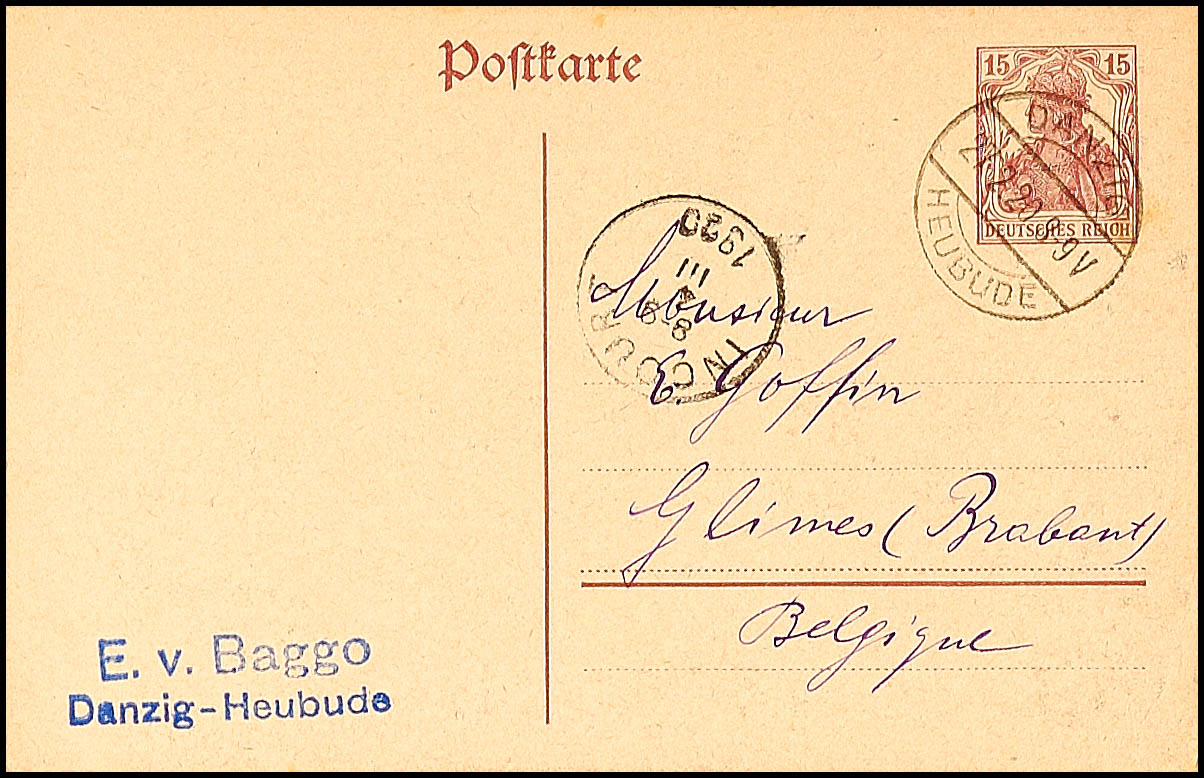 Postkarte
15 15
DEUTSCHES REICH
DANZIG
27.2.20.8-9V
HEUBUDE
INCOURT
8-9
III
1920
Monsieur
E. Goffin
Glimes (Brabant)
Belgique
E. v. Baggo
Danzig-Heubude